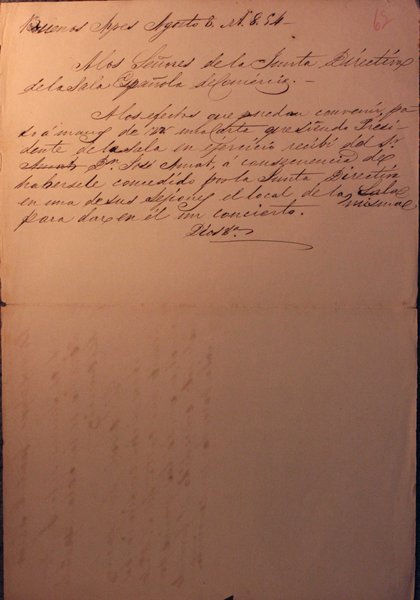 Buenos Ayres Agosto 2 de 1854
A los Señores de la Junta Directiva
de la Sala Española de Comercio.
A los efectos que puedan convenir, pa
so á manos de la carta que siendo Presi
dente de la sala en ejercicio recibí del Sr.
Dn. José Amat, á consecuencia de
habersele concedido por la Junta Directiva
en una de sus sesiones el local de la Sala
misma
para dar en él un concierto.